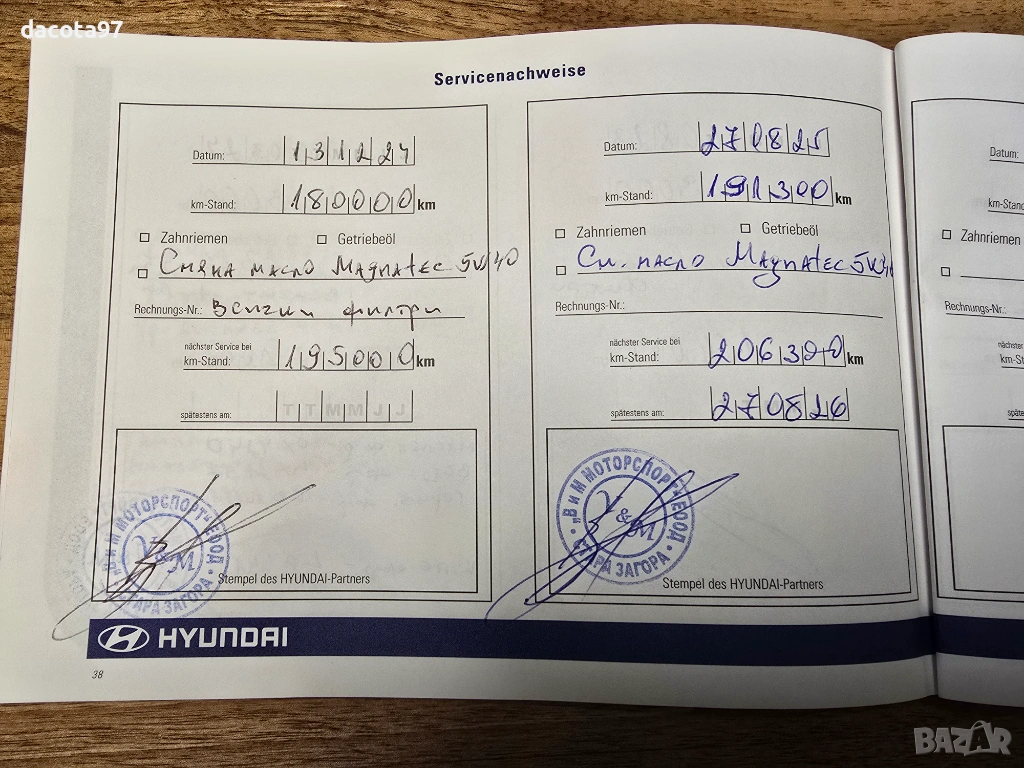 dacota97
Servicenachweise
Datum: 131224
km-Stand: 180000 km
Zahnriemen Getriebeöl
Смяна масло Magnatec 5W40
Rechnungs-Nr.: Бензин филтри
nächster Service bei
km-Stand: 195000 km
spätestens am:
"В и М МОТОРСПОРТ" ЕООД
V&M
СТАРА ЗАГОРА
Stempel des HYUNDAI-Partners
Datum: 270825
km-Stand: 191300 km
Zahnriemen Getriebeöl
См. масло Magnatec 5W40
Rechnungs-Nr.:
nächster Service bei
km-Stand: 206300 km
spätestens am: 270826
"В и М МОТОРСПОРТ" ЕООД
V&M
СТАРА ЗАГОРА
Stempel des HYUNDAI-Partners
Datum:
Zahnriemen
HYUNDAI
38
BAZAR